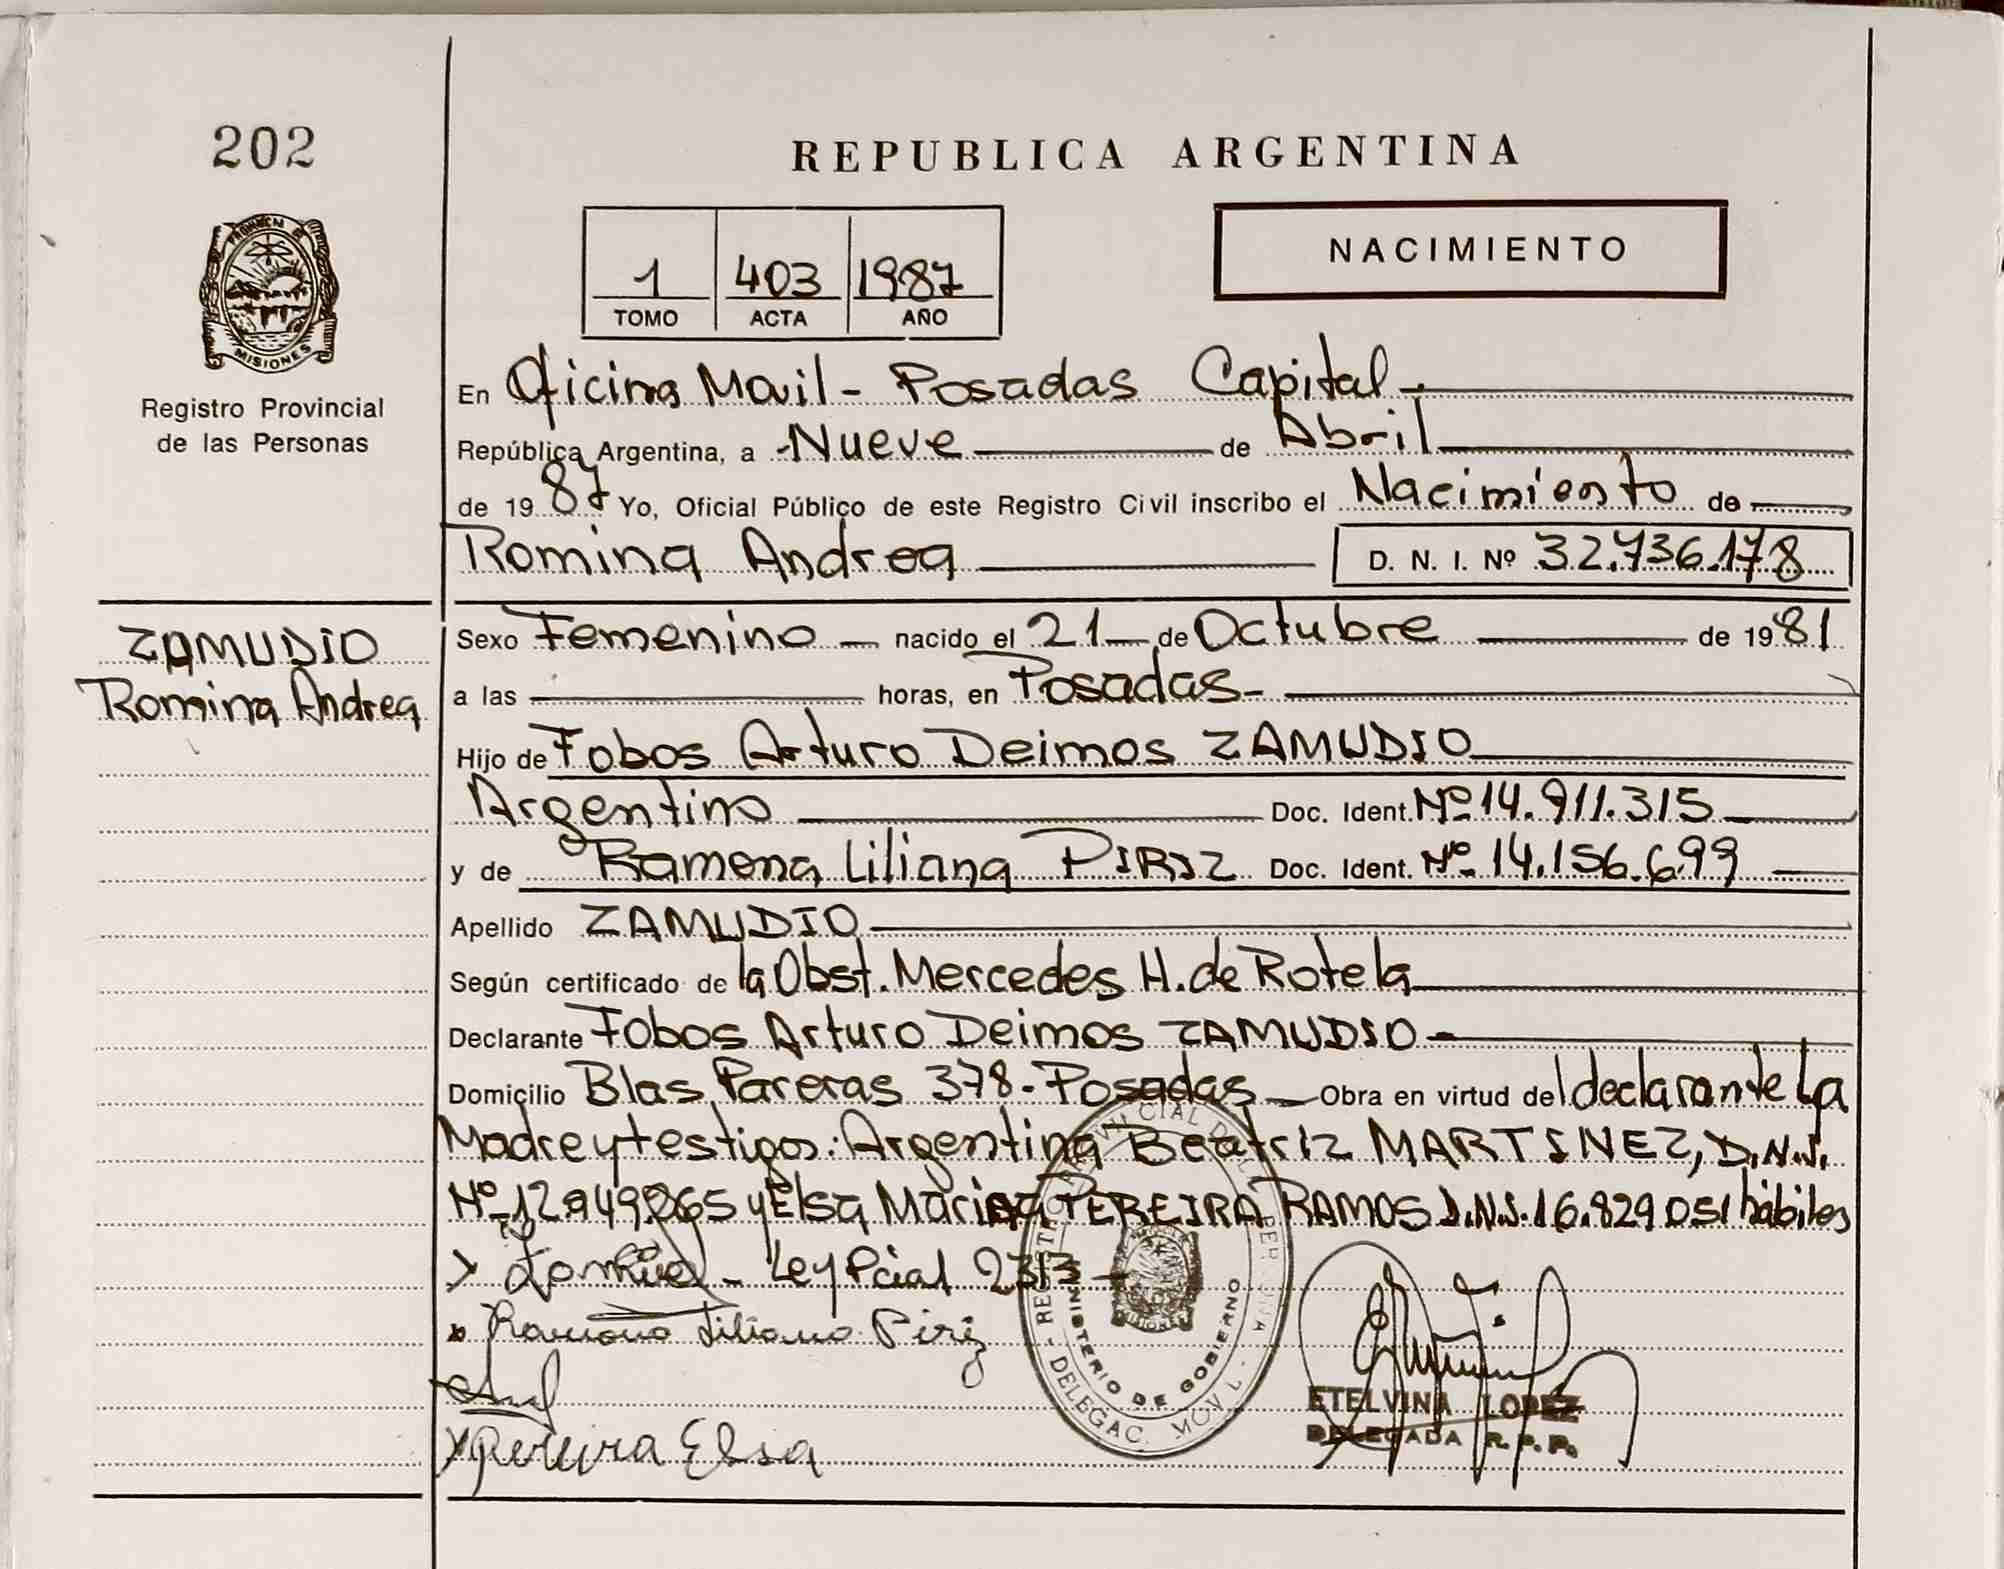 202
REPUBLICA ARGENTINA
NACIMIENTO
1 403 1987
TOMO ACTA AÑO
PROVINCIA DE
MISIONES
Registro Provincial
de las Personas
En Oficina Movil - Posadas Capital -
República Argentina, a - Nueve de Abril
de 1987 Yo, Oficial Público de este Registro Civil inscribo el Nacimiento de
Romina Andrea D. N. I. Nº 32.736.178
ZAMUDIO
Romina Andrea
Sexo Femenino nacido el 21 de Octubre de 1981
a las horas, en Posadas -
Hijo de Fobos Arturo Deimos ZAMUDIO
Argentino Doc. Ident. Nº 14.911.315
y de Ramona Liliana PIRIZ Doc. Ident. Nº 14.156.699
Apellido ZAMUDIO
Según certificado de la Obst. Mercedes H. de Rotela
Declarante Fobos Arturo Deimos ZAMUDIO -
Domicilio Blas Pareras 378 - Posadas Obra en virtud del declarante La
Madre y testigos: Argentina Beatriz MARTINEZ, D.N.I.
Nº 12.949.265 y Elsa Marina PEREIRA RAMOS D.N.I. 16.829.051 hábiles
Ley Pcial 2313 -
Ramona Liliana Piriz
Pereira Elsa
MINISTERIO DE GOBIERNO
DELEGAC. MOVIL
MISIONES
ETELVINA LOPEZ
DELEGADA R. P. P.